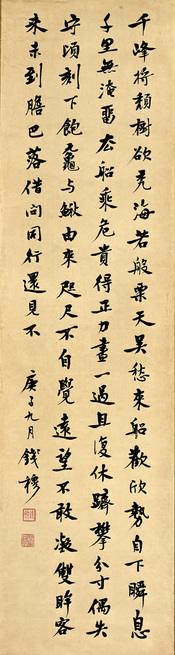 千峰將頹樹欲禿海若股栗天吳愁來船歡欣勢自下瞬息
千里無淹留去船乘危貴得正力盡一過且復休躋攀分寸偶失
守頃刻下飽黿与鰍由來咫尺不自覺遠望不敢凝雙眸客
來未到膽已落借問同行還見不
庚子九月錢穆